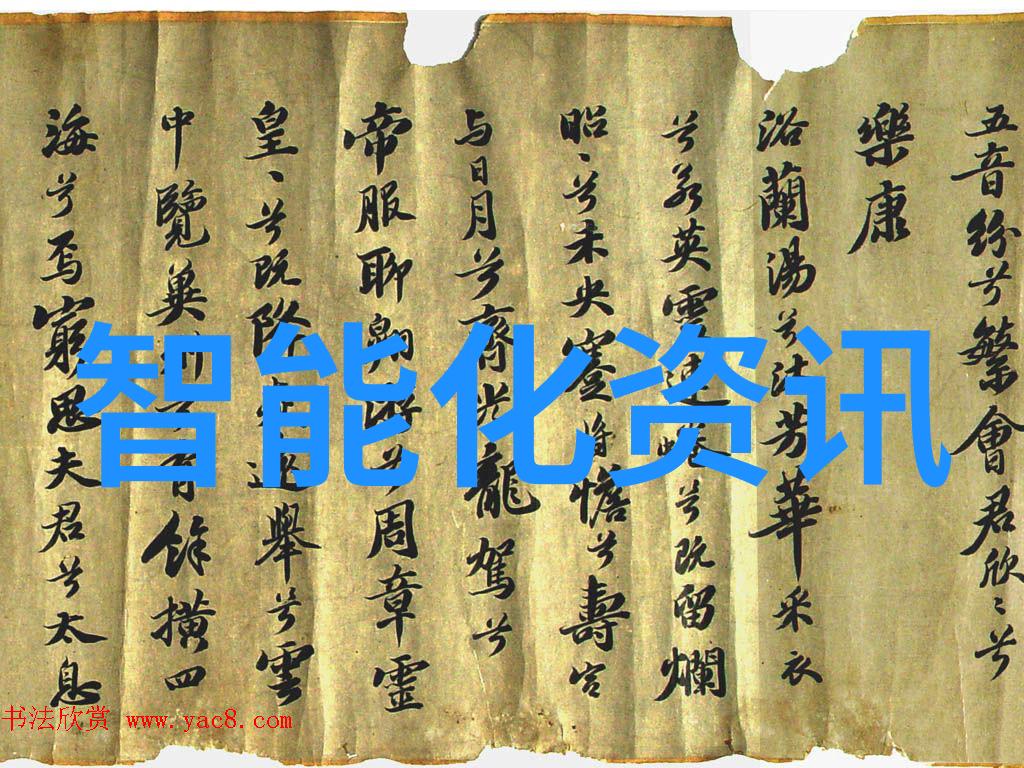 五音紛兮繁會君欣〻兮
樂康
浴蘭湯兮沐芳華采衣
兮若英靈連蜷兮既留爛
昭〻兮未央蹇将憺兮壽宮
与日月兮齊光龍駕兮
帝服聊翱游兮周章靈
皇〻兮既降遠舉兮雲
中覽冀州兮有餘橫四
海兮焉窮思夫君兮太息
智能化资讯
书法欣赏 www.yac8.com